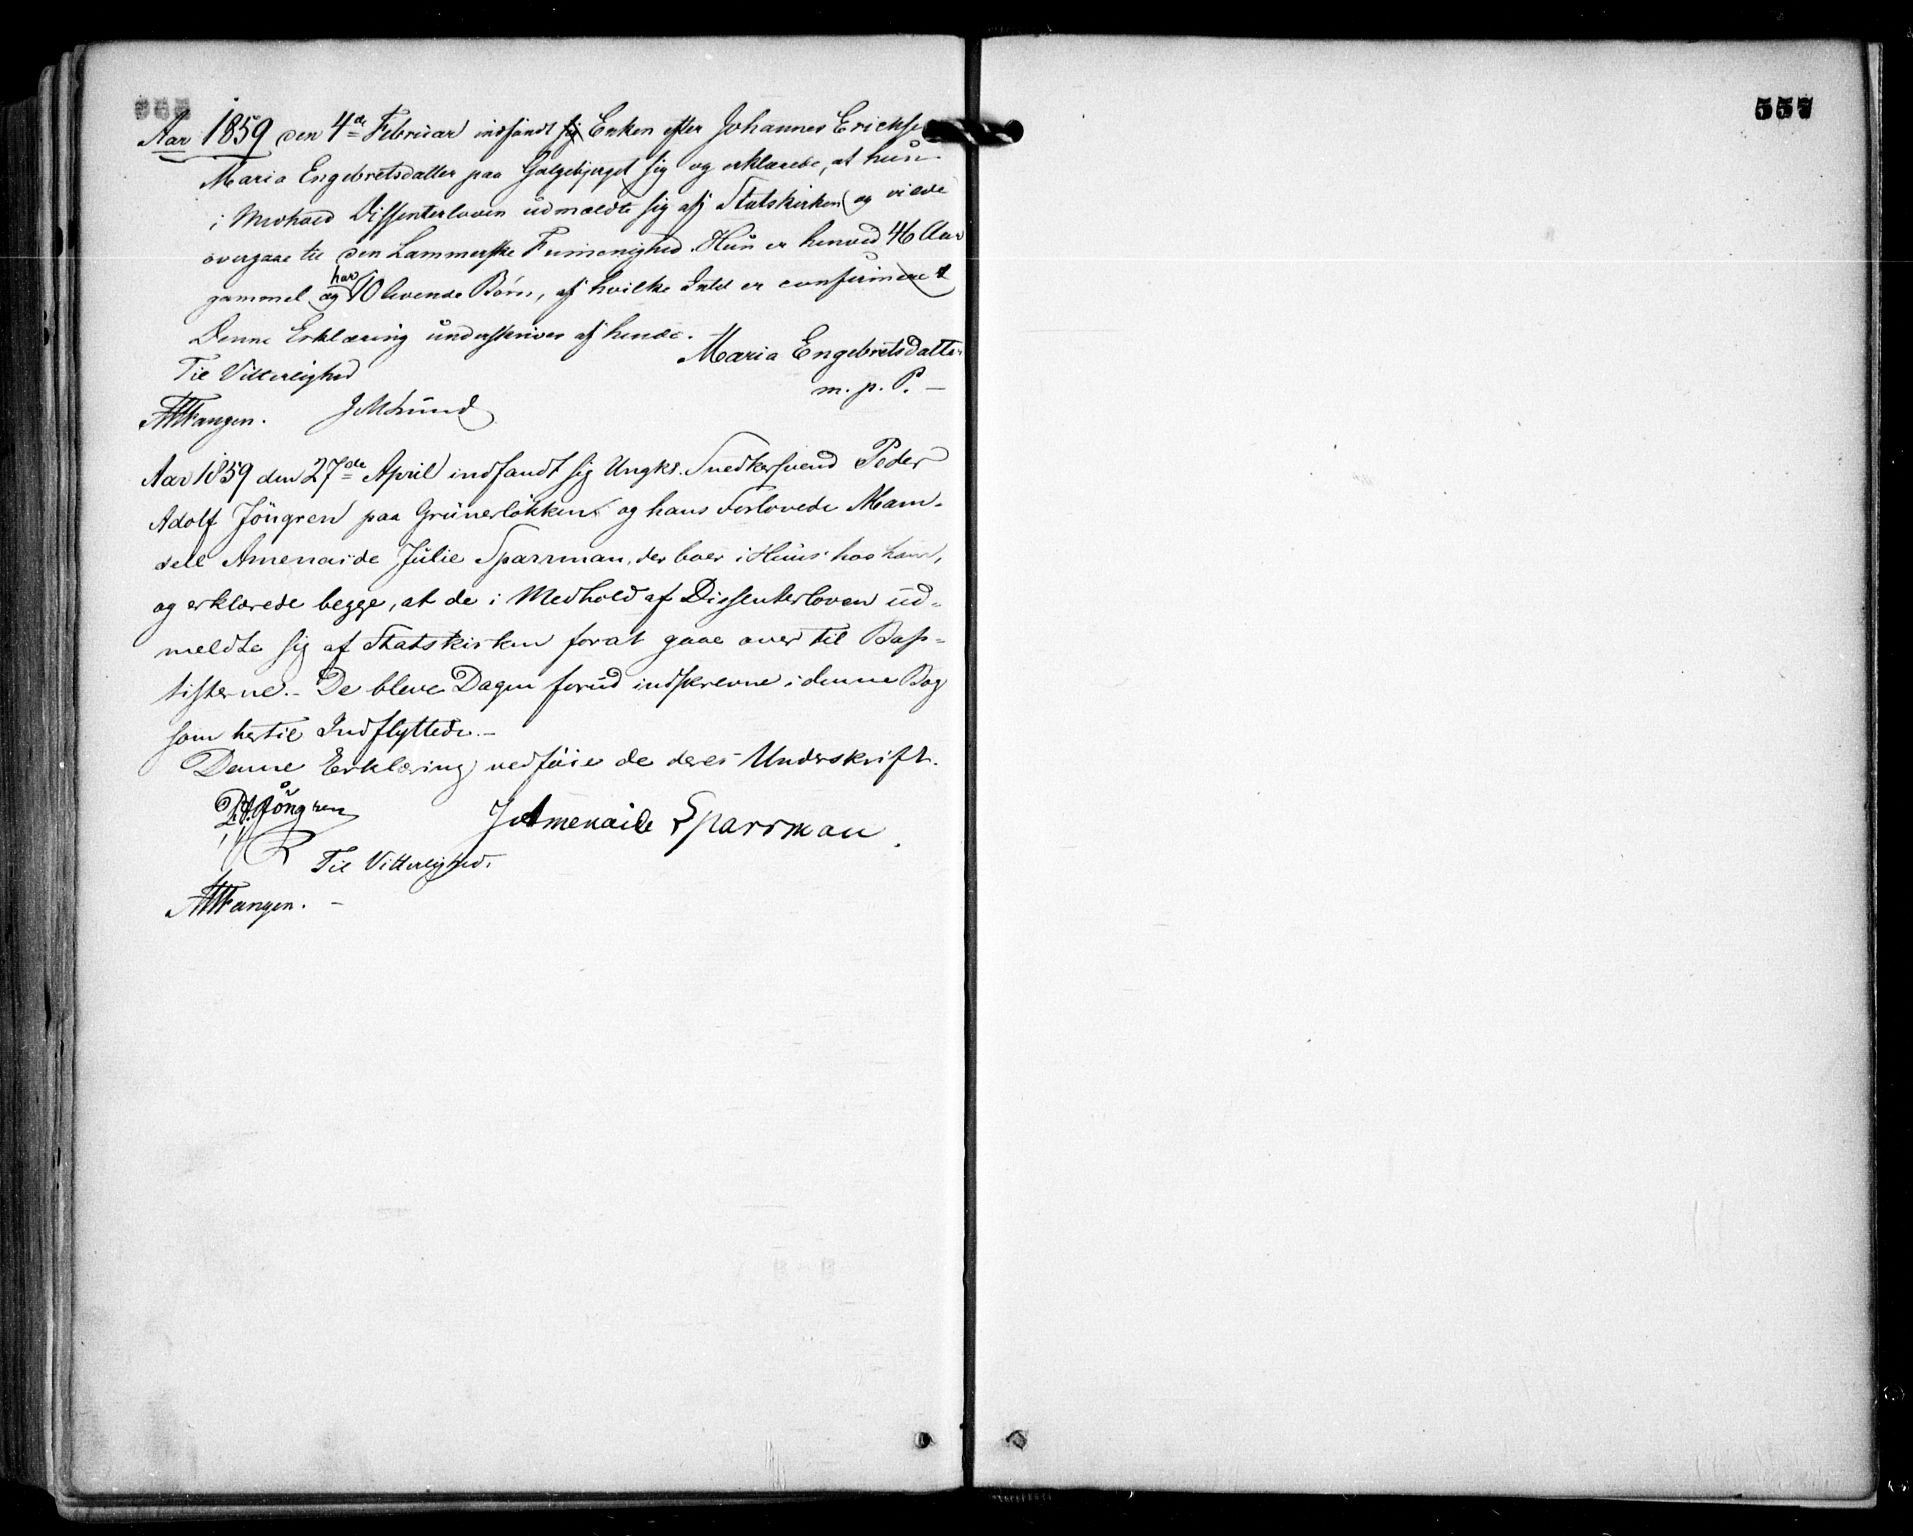 557
Aar 1859 den 4de Februar indfandt sig Enken efter Johannes Erichsen
Maria Engebretsdatter paa Galgebjerget sig og erklærede, at hun
i Medhold Dissenterloven udmeldte sig af Statskirken og vilde
overgaae til den Lammerske Frimenighed. Hun er henved 46 Aar
gammel og har 10 levende Børn, af hvilke Intet er confirmeret
Denne Erklæring underskrives af hende.
Maria Engebretsdatter
Til Vitterlighed
m. p. P. –
Fangen. J M Lund
Aar 1859 den 27de April indfandt sig Ungk. Snedkersvend Peder
Adolf Jöngren paa Grünerløkken og hans Forlovede Mam-
sell Amenaide Julie Sparrman, der boer i Huus hos ham,
og erklærede begge, at de i Medhold af Dissenterloven ud-
meldte sig af Statskirken forat gaae over til Bap-
tisterne. – De bleve Dagen forud indskrevne i denne Bog
som hertil Indflyttede. –
Denne Erklæring vedføie de deres Underskrift.
P. A. Jöngren J Amenaide Sparrman.
Til Vitterlighed.
Fangen. –